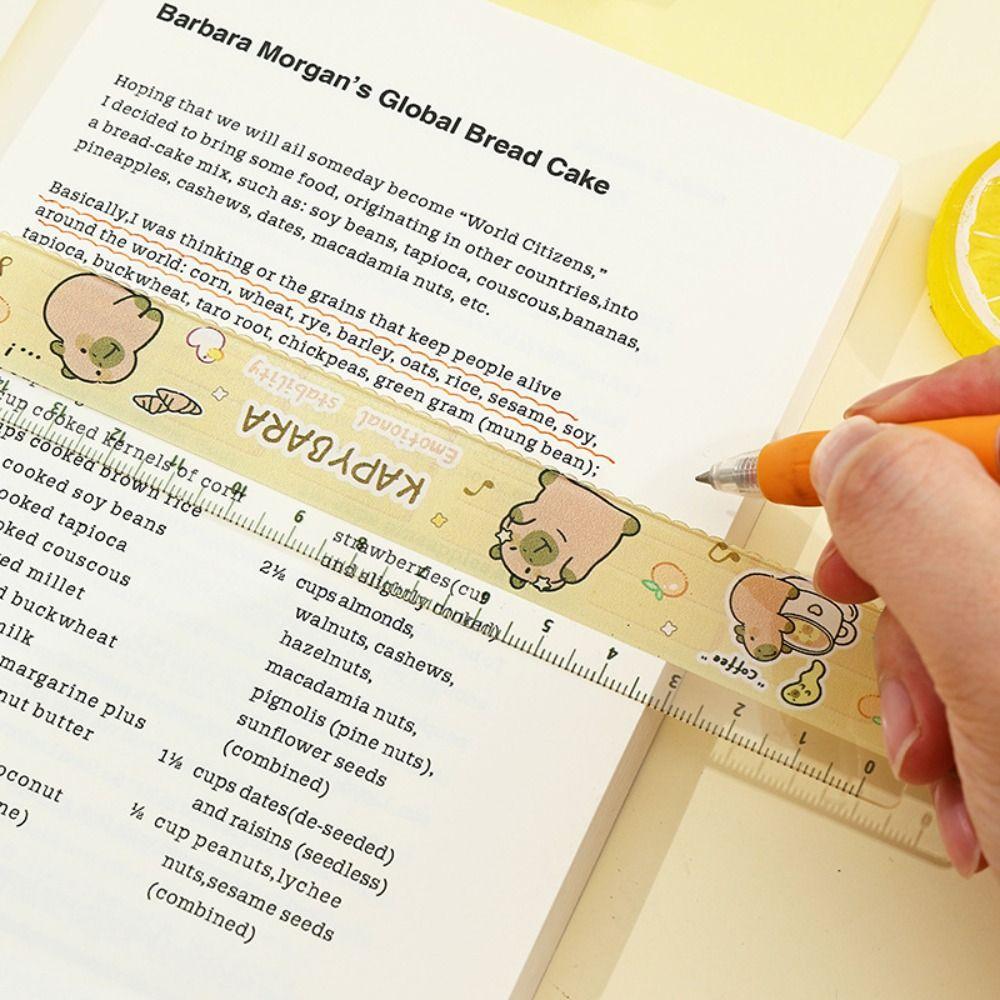 Barbara Morgan's Global Bread Cake
Hoping that we will ail someday become “World Citizens,”
I decided to bring some food, originating in other countries,into
a bread-cake mix, such as: soy beans, tapioca, couscous,bananas,
pineapples, cashews, dates, macadamia nuts, etc.
Basically,I was thinking or the grains that keep people alive
around the world: corn, wheat, rye, barley, oats, rice, sesame, soy,
tapioca, buckwheat, taro root, chickpeas, green gram (mung bean);
Emotional stability
KAPYBARA
"coffee"
12 11 10 9 8 7 6 5 4 3 2 1 0
cup cooked kernels of corn
cups cooked brown rice
cooked soy beans
cooked tapioca
oked couscous
ed millet
d buckwheat
milk
margarine plus
nut butter
oconut
ne)
strawberries(cup
and slightly cooked)
2½ cups almonds,
walnuts, cashews,
hazelnuts,
macadamia nuts,
pignolis (pine nuts),
sunflower seeds
(combined)
1½ cups dates(de-seeded)
and raisins (seedless)
½ cup peanuts,lychee
nuts,sesame seeds
(combined)